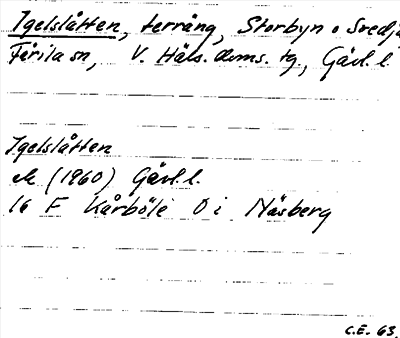 Igelslåtten, terräng, Storbyn o Svedja
Färila sn, V. Häls. doms. tg., Gävl. l.
Igelslåtten
ek (1960) Gävl. l.
16 F Kårböle O i Näsberg
C.E. 63.